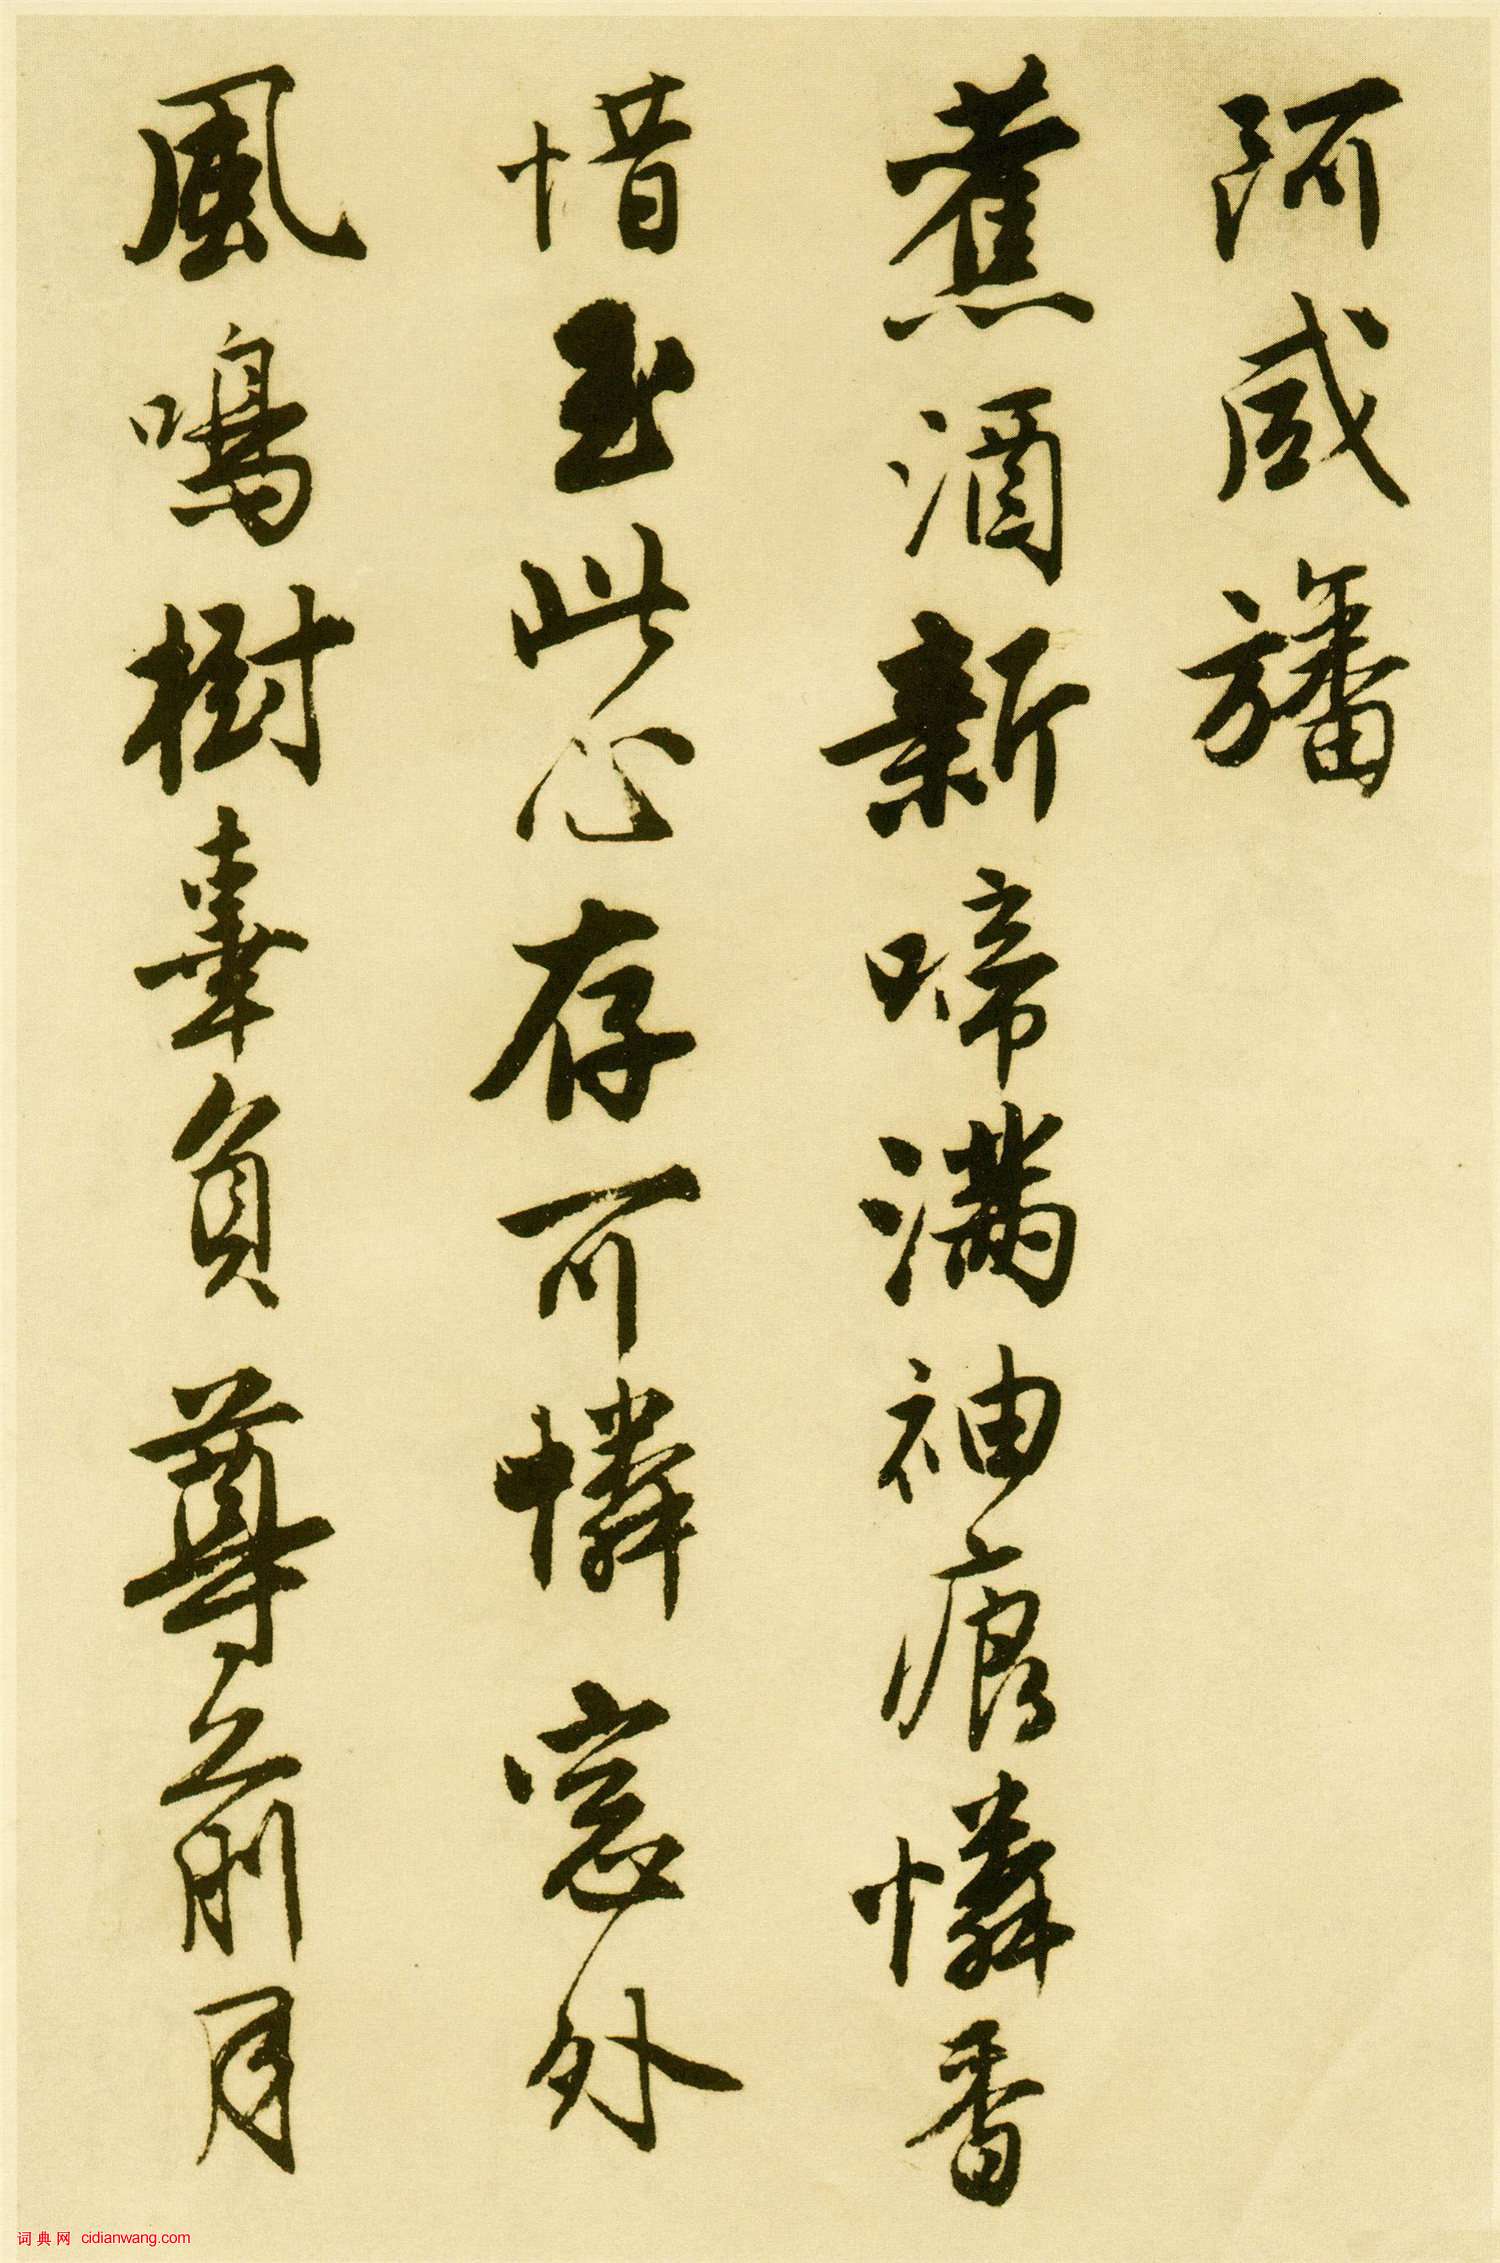 阿咸旛
蕉酒新啼滿袖痕憐香
惜玉此心存可憐窓外
風鳴樹辜負尊前月
词典网 cidianwang.com